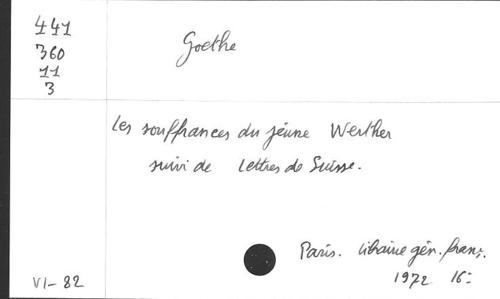 441
360
11
3
Goethe
Les souffrances du jeune Werther
suivi de Lettres de Suisse.
Paris. Librairie gén. franç.
1972 16º
VI-82